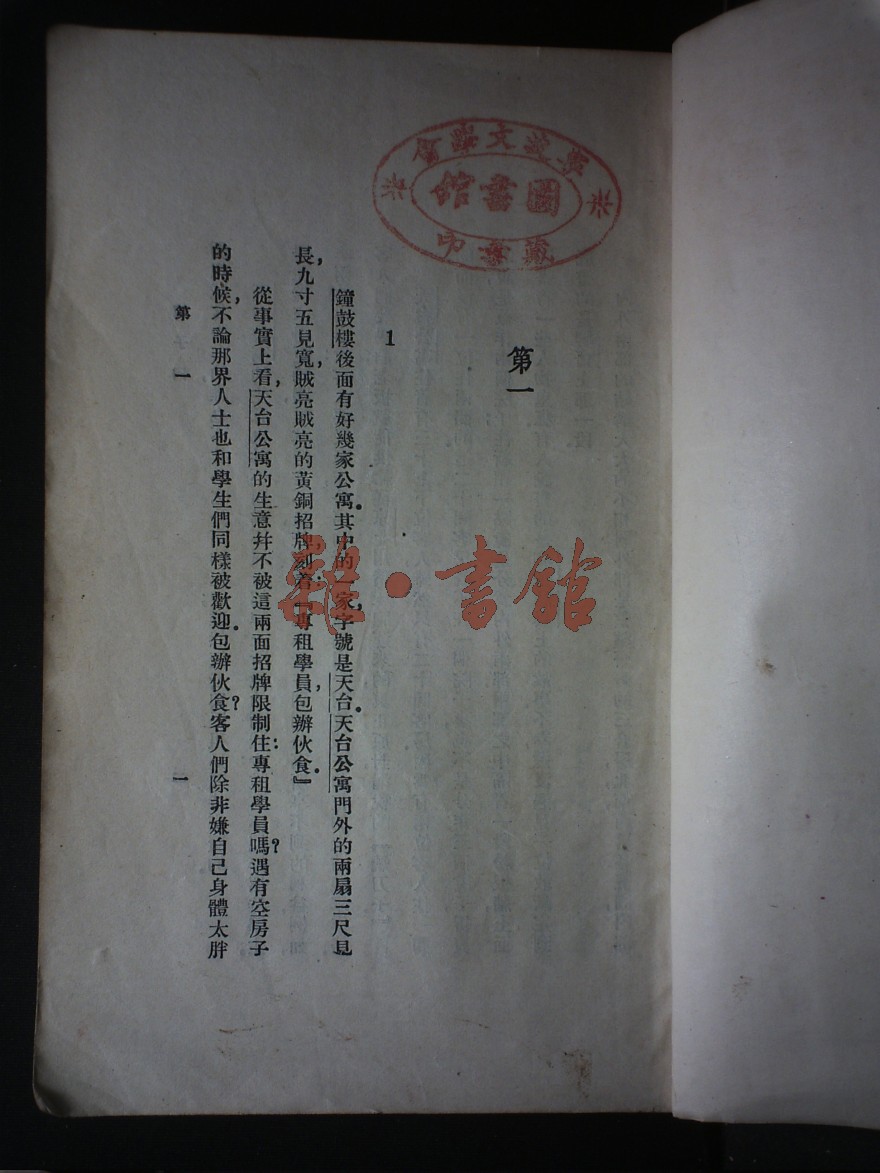 圖書館
藏書印
雜·書館
第一
1
鐘鼓樓後面有好幾家公寓。其中的一家，字號是天台。天台公寓門外的兩扇三尺見
長，九寸五見寬，賊亮賊亮的黃銅招牌，刻着：『專租學員，包辦伙食。』
從事實上看，天台公寓的生意幷不被這兩面招牌限制住：專租學員嗎？遇有空房子
的時候，不論那界人士也和學生們同樣被歡迎。包辦伙食？客人們除非嫌自己身體太胖
第一
一